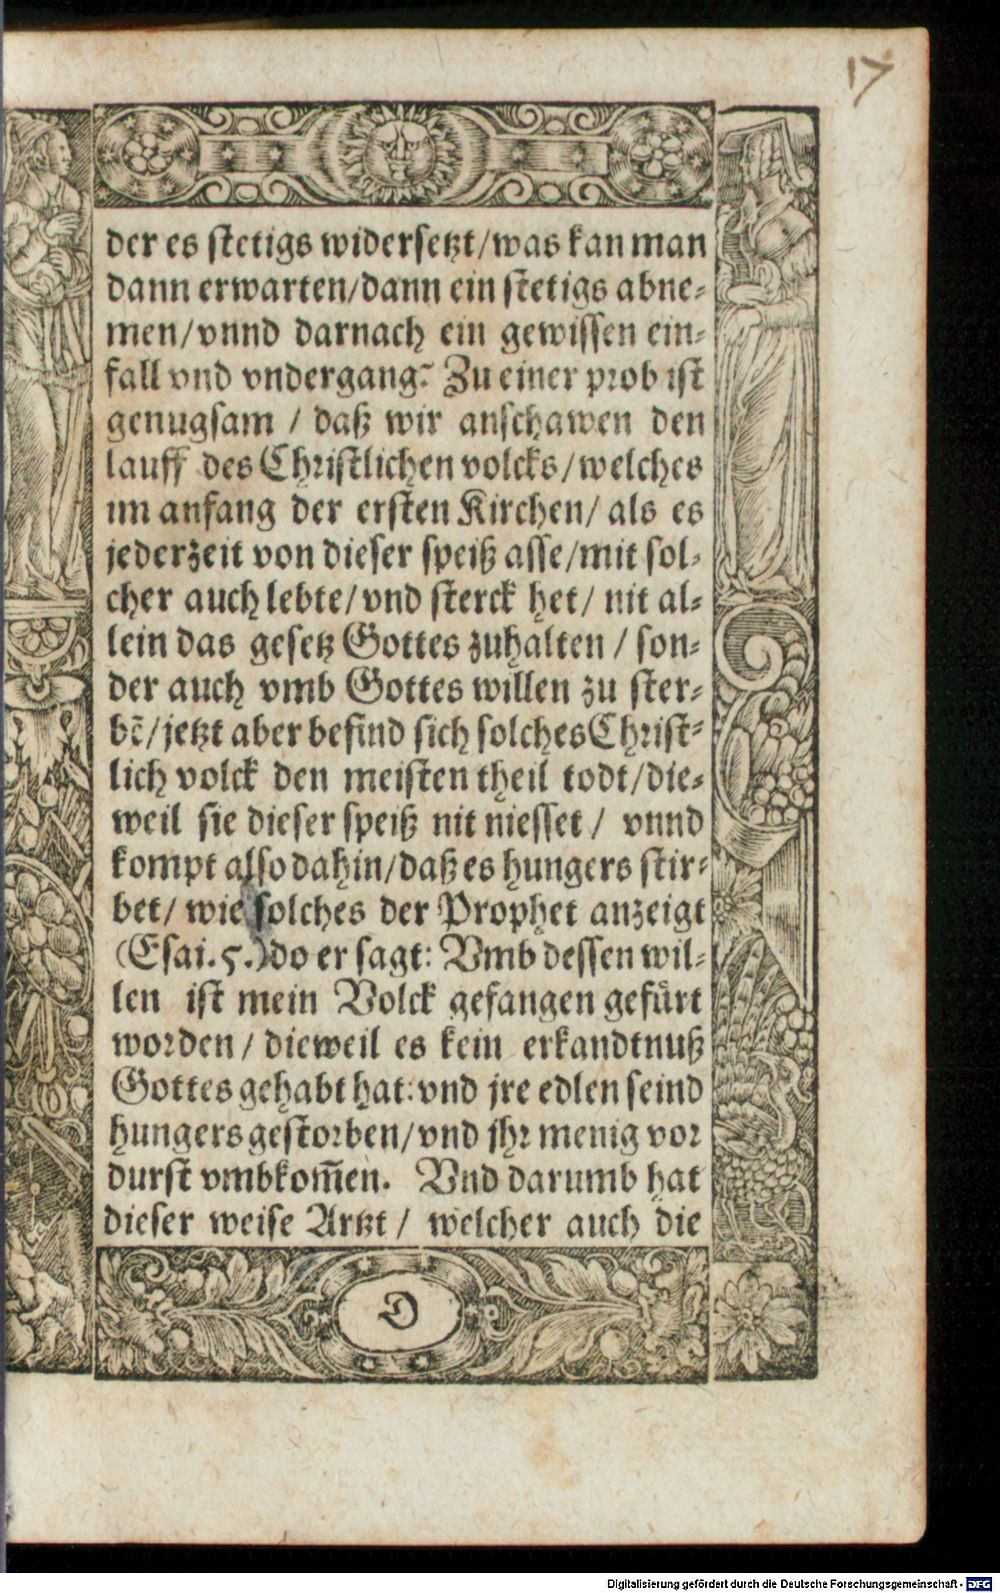 17
der es stetigs widersetzt/was kan man
dann erwarten/dann ein stetigs abne⸗
men/vnnd darnach ein gewissen ein⸗
fall vnd vndergang? Zu einer prob ist
genugsam / daß wir anschawen den
lauff des Christlichen volcks/welches
im anfang der ersten Kirchen/ als es
jederzeit von dieser speiß asse/mit sol⸗
cher auch lebte/vnd sterck het/ nit al⸗
lein das gesetz Gottes zuhalten / son⸗
der auch vmb Gottes willen zu ster⸗
bẽ/jetzt aber befind sich solches Christ⸗
lich volck den meisten theil todt/die⸗
weil sie dieser speiß nit niesset / vnnd
kompt also dahin/daß es hungers stir⸗
bet/ wie solches der Prophet anzeigt
(Esai.5.)do er sagt: Vmb dessen wil⸗
len ist mein Volck gefangen gefürt
worden / dieweil es kein erkandtnuß
Gottes gehabt hat:vnd jre edlen seind
hungers gestorben/vnd jhr menig vor
durst vmbkom̃en. Vnd darumb hat
dieser weise Artzt / welcher auch die
Digitalisierung gefördert durch die Deutsche Forschungsgemeinschaft - DFG